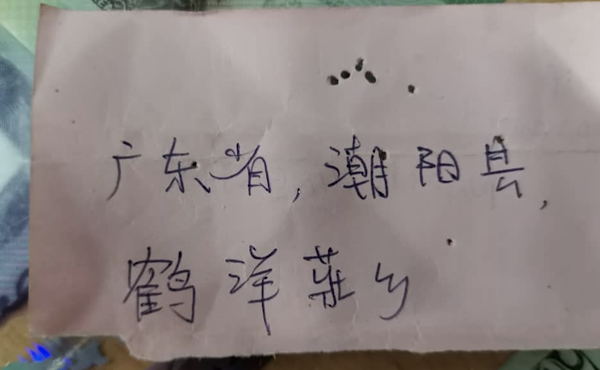 广东省,潮阳县,
鹤洋莊乡